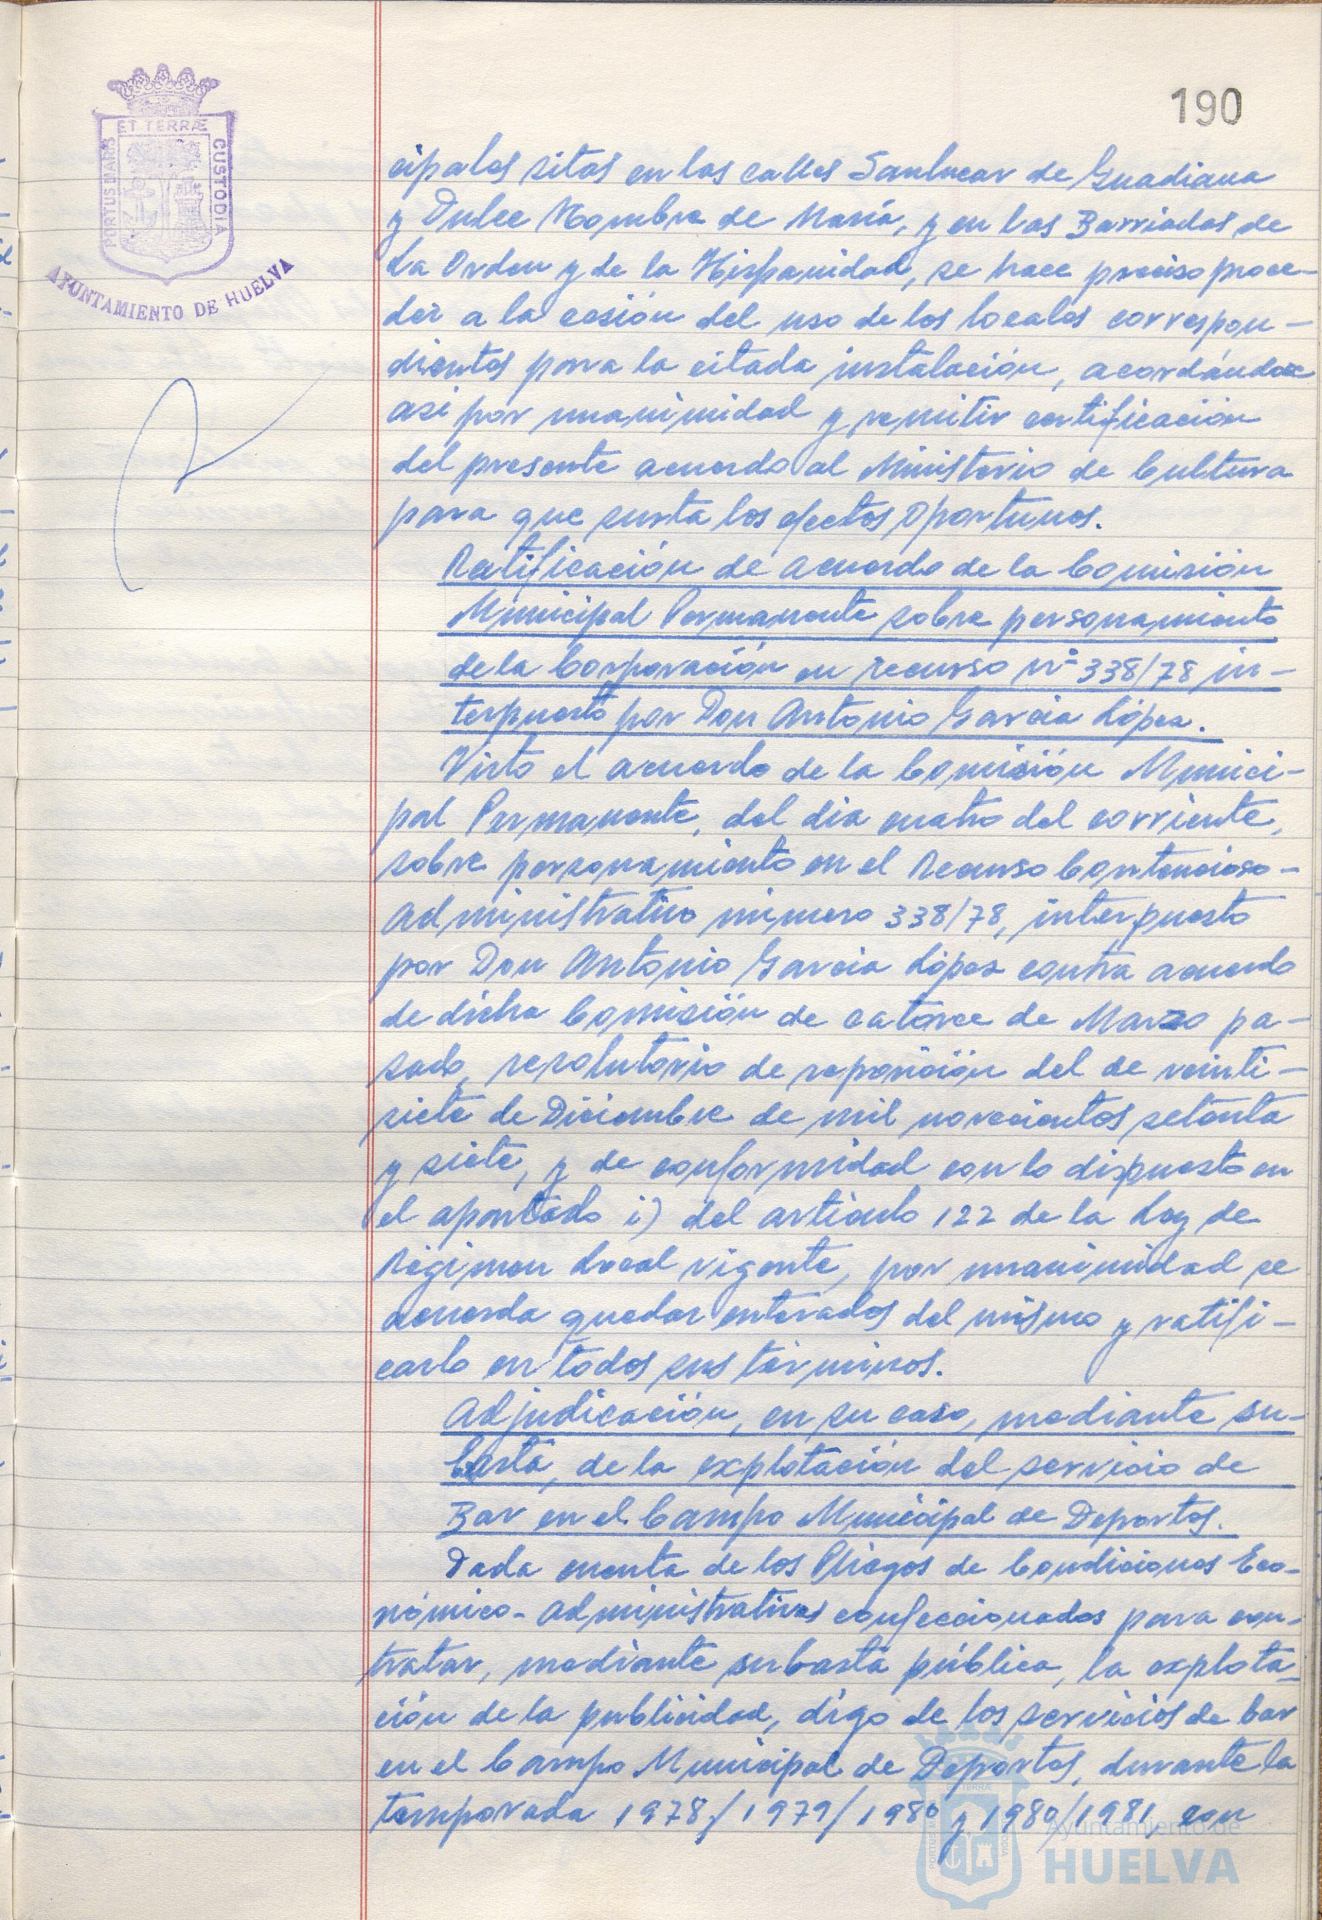 190
ET TERRÆ
PORTUS MARIS
CUSTODIA
AYUNTAMIENTO DE HUELVA
cipales sitas en las calles Sanlucar de Guadiana
y Dulce Nombre de María, y en las Barriadas de
La Orden y de la Hispanidad, se hace preciso proce-
der a la cesión del uso de los locales correspon-
dientes para la citada instalación, acordándose
asi por unanimidad y remitir certificación
del presente acuerdo al Ministerio de Cultura
para que surta los efectos oportunos.
Ratificación de acuerdo de la Comisión
Municipal Permanente sobre personamiento
de la Corporación en recurso nº 338/78 in-
terpuesto por Don Antonio Garcia López.
Visto el acuerdo de la Comisión Munici-
pal Permanente, del dia cuatro del corriente,
sobre personamiento en el Recurso Contencioso-
Administrativo número 338/78, interpuesto
por Don Antonio Garcia López contra acuerdo
de dicha Comisión de catorce de Marzo pa-
sado, resolutorio de reposición del de veinti-
siete de Diciembre de mil novecientos setenta
y siete, y de conformidad con lo dispuesto en
el apartado i) del articulo 122 de la Ley de
Régimen Local vigente, por unanimidad se
acuerda quedar enterados del mismo y ratifi-
carlo en todos sus términos.
Adjudicación, en su caso, mediante su-
basta, de la explotación del servicio de
Bar en el Campo Municipal de Deportes.
Dada cuenta de los Pliegos de Condiciones Eco-
nómico-Administrativas confeccionados para con-
tratar, mediante subasta pública, la explota-
ción de la publicidad, digo de los servicios de bar
en el Campo Municipal de Deportes, durante la
temporada 1978/1979/1980 y 1980/1981, con
Ayuntamiento de
HUELVA